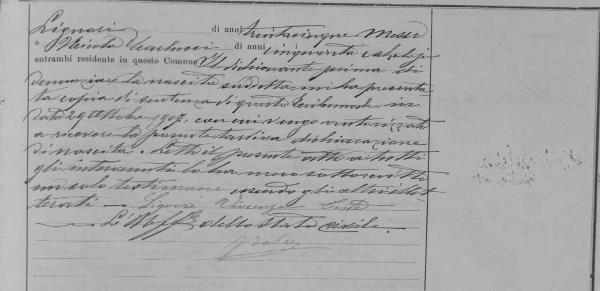 Liguori di anni trentacinque Messo
e Nicola di anni cinquanta calzolajo
entrambi residente in questo Comune. Il dichiarante prima di
denunziare la nascita suddetta mi ha presenta
ta copia di sentenza di questo Tribunale in
data 29 Ottobre 1907, con cui vengo autorizzato
a ricevere la presente tardiva dichiarazione
di nascita. Letto il presente atto a tutti
gli intervenuti lo ha meco sottoscritto
un solo testimone essendo gli altri illet
terati - Liguori Vincenzo teste
L'Uff.le dello Stato civile.